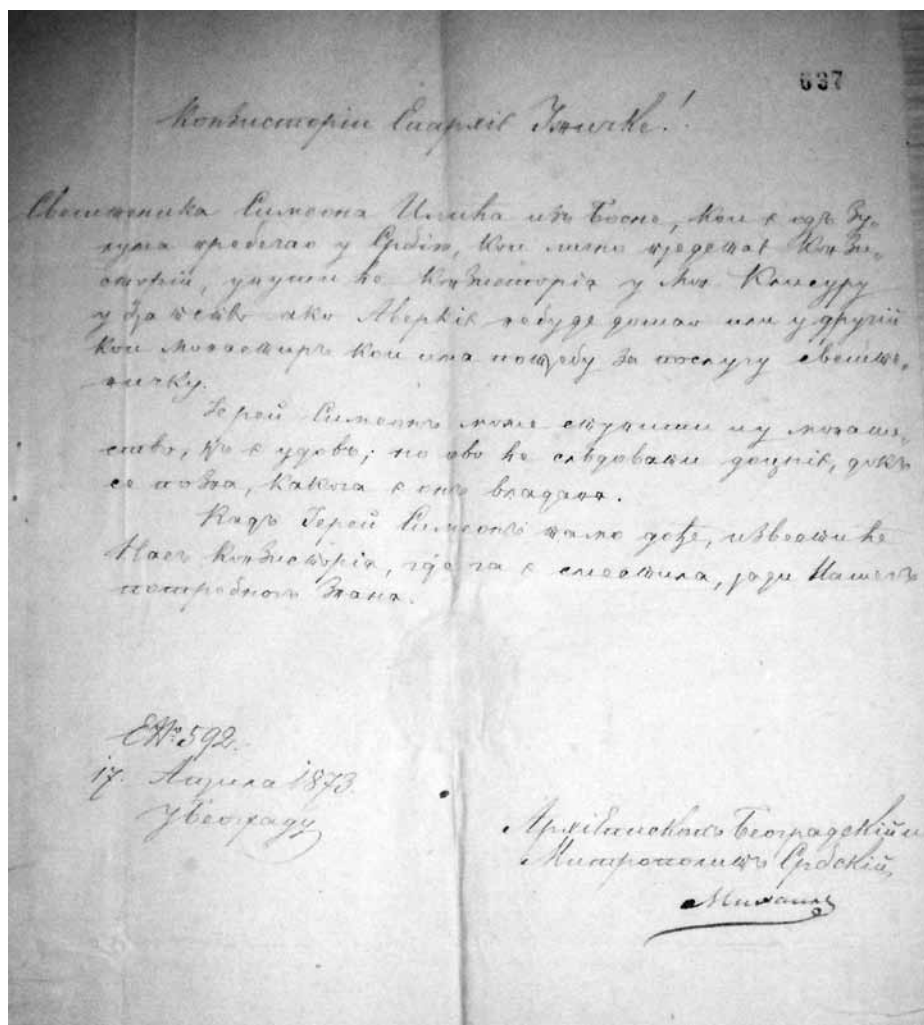 637
Конзисторіи Епархіе Ужичке!
Свештеника Симеона Илића изъ Босне, кои є одъ Зу-
лума пребегао у Србію, кои лично предстає Конзи-
сторіи, упутити ће Конзисторія у Мон. Клисуру
у ако Аверкіє небуде дошао или у другій
кои монастиръ кои има потребу за послугу свеште-
ничку.
Іерей Симеонъ може ступити и у монаше-
ство, є удовъ; но ово ће слѣдовати доцніє, докъ
се позна, каквога є онъ владаня.
Кадъ Іерей Симеонъ тамо дође, известиће
Насъ Конзисторія, где га є сместила, ради Нашегъ
потребногъ знаня.
Е№ 592.
17. Априла 1873.
у Београду
Архіепископъ Београдскій и
Митрополитъ Србскій,
Михаилъ